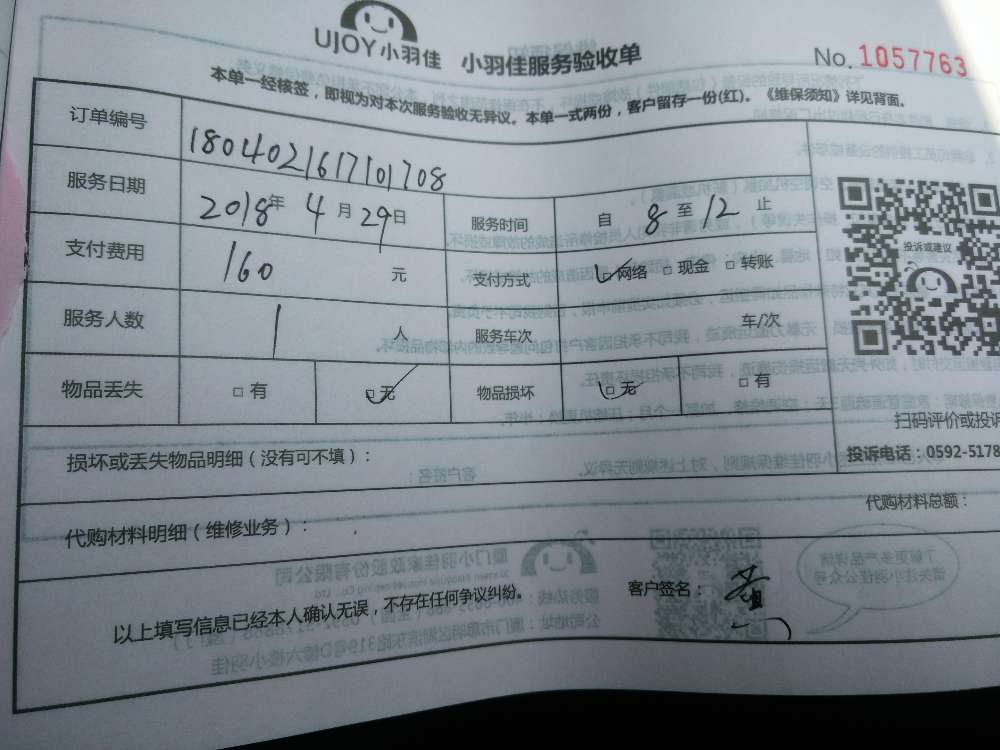 UJOY小羽佳 小羽佳服务验收单
No. 1057763
本单一经核签，即视为对本次服务验收无异议。本单一式两份，客户留存一份(红)。《维保须知》详见背面。
订单编号 1804021617101708
服务日期 2018年 4月29日 服务时间 自 8 至 12 止
支付费用 160 元 支付方式 □网络 □现金 □转账
服务人数 1 人 服务车次 车/次
物品丢失 □有 □无 物品损坏 □无 □有
投诉或建议
扫码评价或投诉
投诉电话：0592-5178
损坏或丢失物品明细（没有可不填）：
代购材料明细（维修业务）：
代购材料总额：
以上填写信息已经本人确认无误，不存在任何争议纠纷。
客户签名： 黄